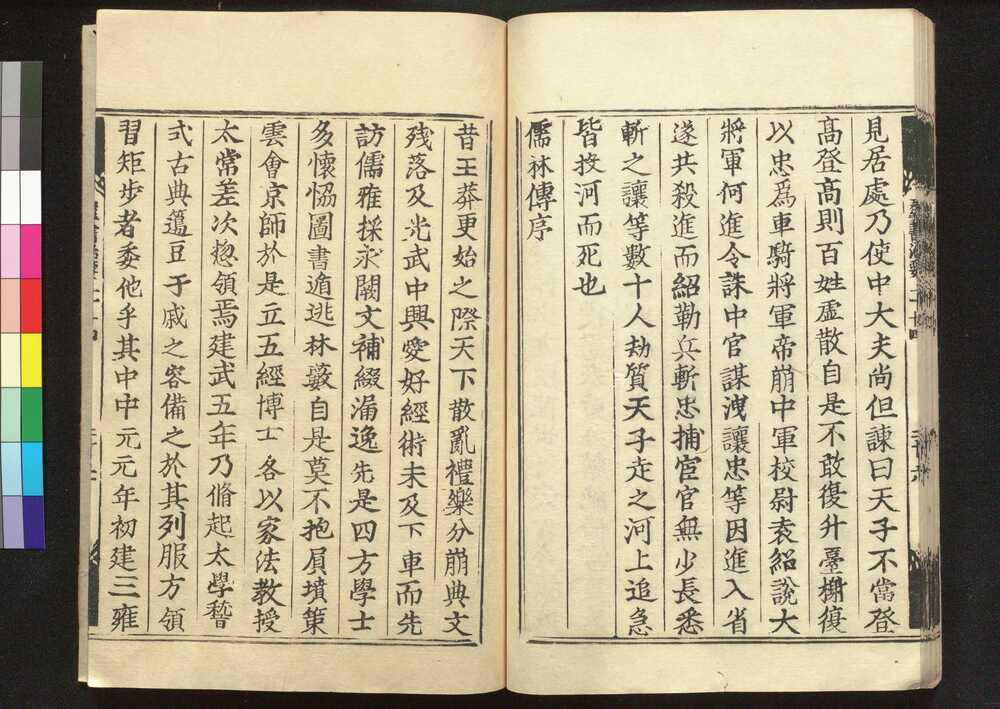 見居處乃使中大夫尚但諫曰天子不當登
髙登髙則百姓虛散自是不敢復升臺榭復
以忠爲車騎將軍帝崩中軍校尉袁紹說大
將軍何進令誅中官謀洩讓忠等因進入省
遂共殺進而紹勒兵斬忠捕宦官無少長悉
斬之讓等數十人劫質天子走之河上追急
皆投河而死也
儒林傳序
昔王莽更始之際天下散亂禮樂分崩典文
殘落及光武中興愛好經術未及下車而先
訪儒雅採求闕文補綴漏逸先是四方學士
多懷恊圖書遁逃林藪自是莫不抱負墳策
雲會京師於是立五經博士各以家法教授
太常差次惣領焉建武五年乃脩起太學嵆
式古典籩豆于戚之容備之於其列服方領
習矩步者委他乎其中中元元年初建三雍